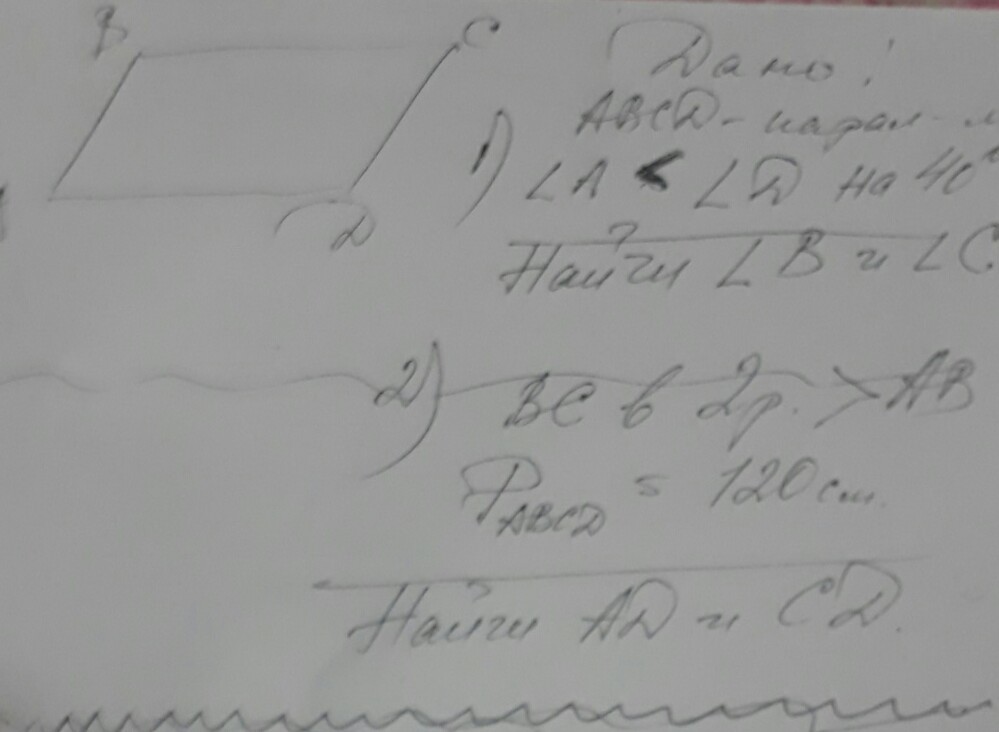 B
C
Дано:
ABCD - парал - м
1) ∠A < ∠D на 40°
Найти ∠B и ∠C
D
2) BC в 2р. > AB
P ABCD = 120 см.
Найти AD и CD.